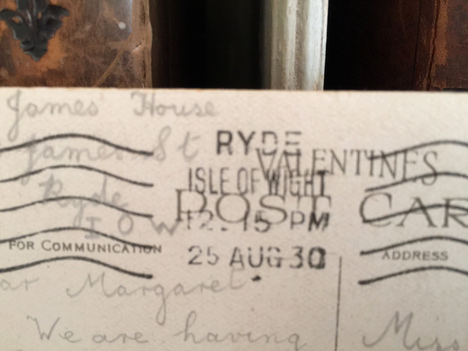 James House
James St
Ryde
I O W
RYDE
ISLE OF WIGHT
12.15 PM
25 AUG 30
VALENTINES
POST CAR
FOR COMMUNICATION
ADDRESS
ar Margaret
We are having
Miss